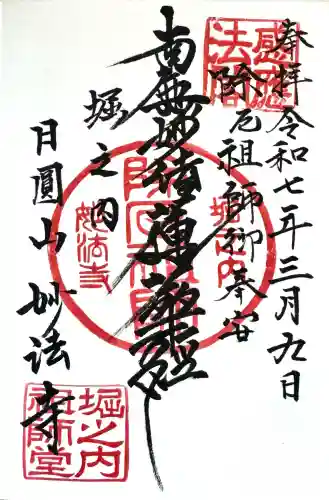 奉拝
令和七年三月九日
除厄祖師御奉安
南無妙法蓮華経
堀之内
日圓山 妙法寺
感應
法閣
堀之内
妙法寺
除厄祖師
堀之内
祖師堂